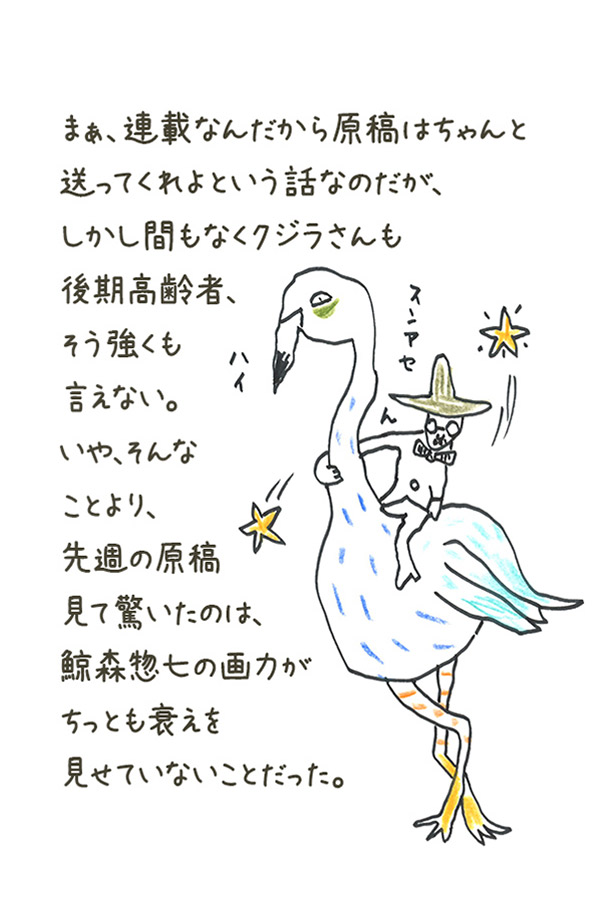 まぁ、連載なんだから原稿はちゃんと
送ってくれよという話なのだが、
しかし間もなくクジラさんも
後期高齢者、
そう強くも
言えない。
いや、そんな
ことより、
先週の原稿
見て驚いたのは、
鯨森惣七の画力が
ちっとも衰えを
見せていないことだった。
スンアセ
ん
ハイ